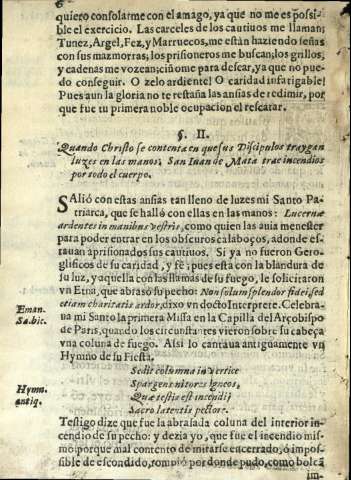 6
quiero consolarme con el amago, ya que no me es possi-
ble el exercicio. Las carceles de los cautiuos me llaman;
Tunez, Argel, Fez, y Marruecos, me estàn haziendo señas
con sus mazmorras; los prisioneros me buscan; los grillos,
y cadenas me vozean; ciñome para desear, ya que no pue-
do conseguir. O zelo ardiente! O caridad infatigable!
Pues aun la gloria no te restaña las ansias de redimir, por
que fue tu primera noble ocupacion el rescatar.
§. II.
Quando Christo se contenta en que sus Discipulos traygan
luzes en las manos; San Iuan de Mata trae incendios
por todo el cuerpo.
SAliò con estas ansias tan lleno de luzes mi Santo Pa-
triarca, que se hallò con ellas en las manos: Lucernæ
ardentes in manibus vestris, como quien las auia menester
para poder entrar en los obscuros calaboços, adonde es-
tauan aprisionados sus cautiuos. Si ya no fueron Gero-
glificos de su caridad, y fè; pues esta con la blandura de
su luz, y aquella con las llamas de su fuego, le solicitaron
vn Etna, que abrasò su pecho: Non solum splendor fidei, sed
etiam charitatis ardor, dixo vn docto Interprete. Celebra-
Eman.
Sa. hic.
ua mi Santo la primera Missa en la Capilla del Arçobispo
de Paris, quando los circunstantes vieron sobre su cabeça
vna coluna de fuego. Assi lo cantaua antiguamente vn
Hymno de su Fiesta.
Hymn.
antiq.
Sedit columna in vertice
Spargens nitores igneos,
Quæ testis est incendij
Sacro latentis pectore.
Testigo dize que fue la abrasada coluna del interior in-
cendio de su pecho: y dezia yo, que fue el incendio mis-
mo: porque mal contento de mirarse encerrado, ò impos-
sible de escondido, rompiò por donde pudo, como bolcà
im-